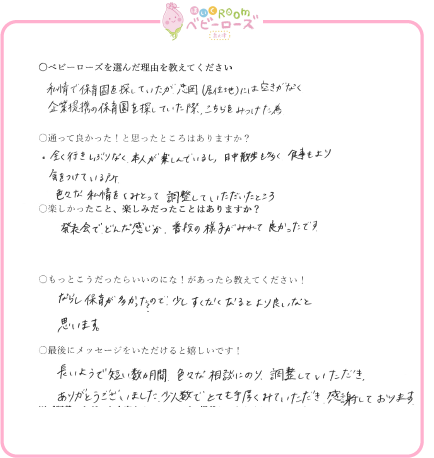 ほいくROOM
ベビーローズ
〇ベビーローズを選んだ理由を教えてください
私情で保育園を探していたが、(居住地)には空きがなく
企業提携の保育園を探していた際、こちらをみつけた為
〇通って良かった！と思ったところはありますか？
・全く行きしぶりなく、本人が楽しんでいるし、日中散歩も多く、食事もより
気をつけている所
色々な私情をくみとって、調整していただいたところ
〇楽しかったこと、楽しみだったことはありますか？
発表会でどんな感じか、普段の様子がみれて良かったです
〇もっとこうだったらいいのにな！があったら教えてください！
ならし保育が多かったので、少しすくなくなるとより良いなと
思います。
〇最後にメッセージをいただけると嬉しいです！
長いようで短い数ヵ月間、色々な相談にのり、調整していただき、
ありがとうございました。少人数でとても手厚くみていただき、感謝しております。